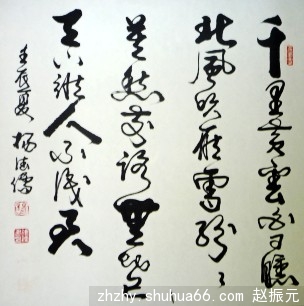 千里黄雲白日曛
北風吹雁雪紛々
莫愁前路無知己
天下誰人不識君
壬辰夏 楊
zhzhy.shuhua66.com 赵振元